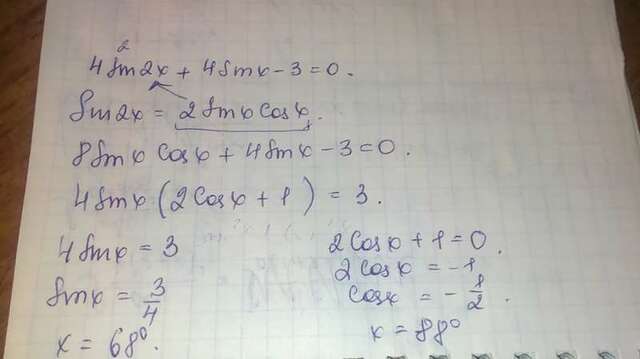 4 sin²2x + 4 sin x - 3 = 0.
Sin 2x = 2 sin x cos x.
8 sin x cos x + 4 sin x - 3 = 0.
4 sin x (2 cos x + 1) = 3.
4 sin x = 3
sin x = 3/4
x = 68°.
2 cos x + 1 = 0.
2 cos x = -1
cos x = -1/2.
x = 88°